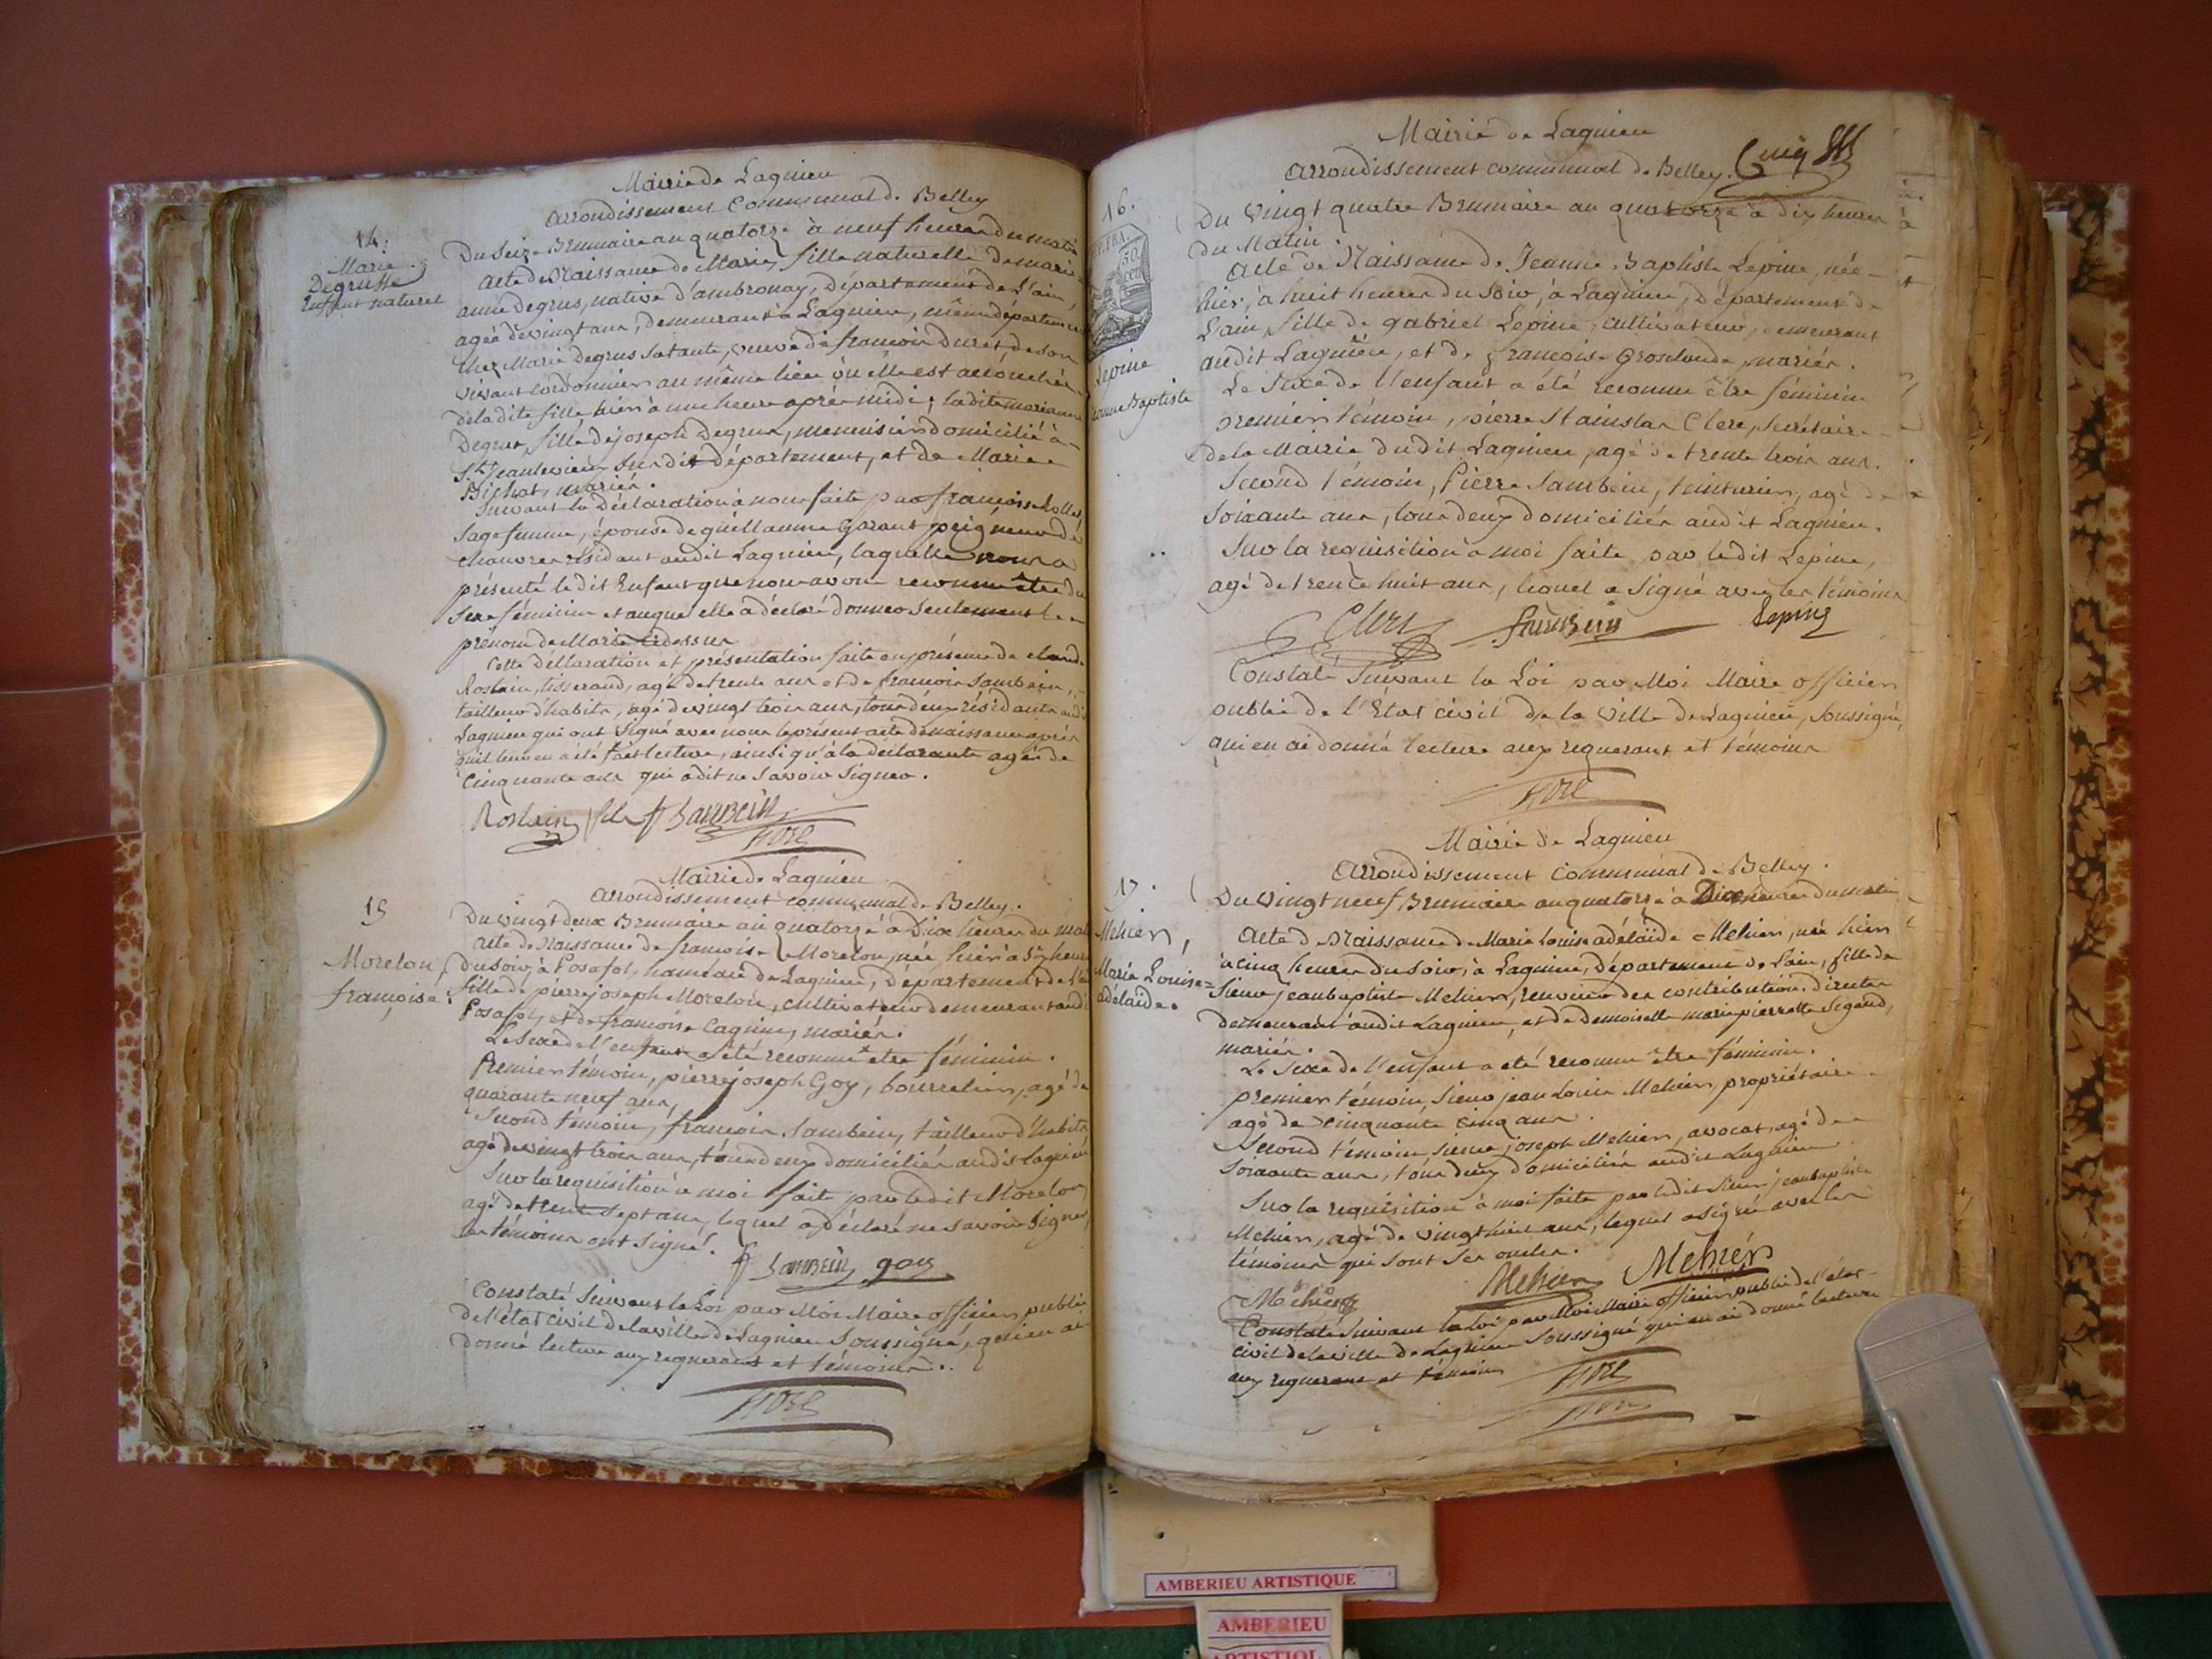 Mairie de Lagnieu
Arrondissement Communal de Belley
14.
Marie
Degrusse
Enfant naturel
Du Seize Brumaire an quatorze à neuf heures du matin
Acte de Naissance de Marie, fille naturelle de marie
anne Degrus, native d'ambronay, département de l'ain,
agée de vingt ans, demeurant à Lagnieu, même département
chez Marie Degrus sa tante, veuve de françois Duret, de son
vivant cordonnier au même lieu où elle est accouchée
de la dite fille hier à une heure après midi; la dite marianne
Degrus, fille de joseph Degrus, menuisier domicilié à
St. jean le vieux susdit département, et de Marie
Bichat, mariés.
Suivant la Déclaration à nous faite par françoise
Sage femme, épouse de guillaume Garant peigneur de
chanvre résidant audit Lagnieu, laquelle nous a
présenté le dit Enfant que nous avons reconnu être du
Sexe féminin et auquel elle a déclaré donner seulement le
prénom de Marie cidessus
Cette déclaration et présentation faite en présence de claude
Roslain, tisserand, agé de trente ans et de françois Sambein,
tailleur d'habits, agé de vingt trois ans, tous deux résidants audit
Lagnieu qui ont signé avec nous le présent acte de naissance après
qu'il leur en a été fait lecture, ainsi qu'à la déclarante agée de
cinquante ans qui a dit ne savoir signer.
Roslain fils f Sambein
Mairie de Lagnieu
Arrondissement communal de Belley.
15
Morelon
françoise.
Du vingt deux Brumaire an quatorze à Dix heures du matin
Acte de Naissance de françoise Morelon, née hier à six heures
du soir, à Posafol, hameau de Lagnieu, Département de l'ain
fille de pierre joseph Morelon, cultivateur demeurant audit
Posafol, et de françoise Cagnin, mariés.
Le sexe de l'enfant a été reconnu être féminin.
Premier témoin, pierre joseph Goy, bourrelier, agé de
quarante neuf ans,
Second témoin, françois Sambein, tailleur d'habits
agé de vingt trois ans, tous deux domiciliés audit Lagnieu
Sur la requisition à moi faite par ledit Morelon
agé de trente sept ans, lequel a déclaré ne savoir signer,
les témoins ont signé.
f Sambein goy
Constaté suivant la Loi par Moi Maire officier public
de l'état civil de la ville de Lagnieu Soussigné, qui en ai
donné lecture aux requerant et témoins..
Mairie de Lagnieu
Arrondissement communal de Belley.
16.
50
cen
Lepine
Jeanne Baptiste
Du vingt quatre Brumaire an quatorze à dix heures
du Matin.
Acte de Naissance de Jeanne Baptiste Lepine, née
hier, à huit heures du soir, à Lagnieu, Département de
Lain, fille de gabriel Lepine, cultivateur, demeurant
audit Lagnieu, et de françoise Groslonde, mariés.
Le Sexe de l'enfant a été reconnu être féminin
premier témoin, pierre Stainslas Clerc, secrétaire
de la Mairie dudit Lagnieu, agé de trente trois ans.
Second témoin, Pierre Sambein, teinturier, agé de
soixante ans, tous deux domiciliés audit Lagnieu.
Sur la requisition à moi faite par ledit Lepine,
agé de trente huit ans, lequel a signé avec les témoins
Clerc Sambein Lepine
Constaté Suivant la Loi par Moi Maire officier
public de l'Etat civil de la ville de Lagnieu, soussigné,
qui en ai donné lecture aux requerant et témoins
Mairie de Lagnieu
Arrondissement Communal de Belley.
17.
Mehier,
Marie Louise=
adélaïde.
Du vingt neuf Brumaire an quatorze à Dix heures du matin
Acte de Naissance de Marie Louise adélaïde Mehier, née hier
à cinq heures du soir, à Lagnieu, département de Lain, fille de
Sieur jean baptiste Mehier, receveur des contributions directes
demeurant audit Lagnieu, et de demoiselle marie pierrette Segaud,
mariés.
Le Sexe de l'enfant a été reconnu être féminin.
premier témoin, Sieur jean Louis Mehier, propriétaire
agé de cinquante cinq ans.
Second témoin, Sieur joseph Mehier, avocat, agé de
soixante ans, tous deux domiciliés audit Lagnieu.
Sur la requisition à moi faite par ledit sieur jean baptiste
Mehier, agé de vingt huit ans, lequel a signé avec les
témoins qui sont ses oncles.
Mehier Mehier Mehier
Constaté suivant la Loi par Moi Maire officier public de l'état
civil de la ville de Lagnieu Soussigné qui en ai donné lecture
aux requerant et témoins
AMBERIEU ARTISTIQUE
AMBERIEU